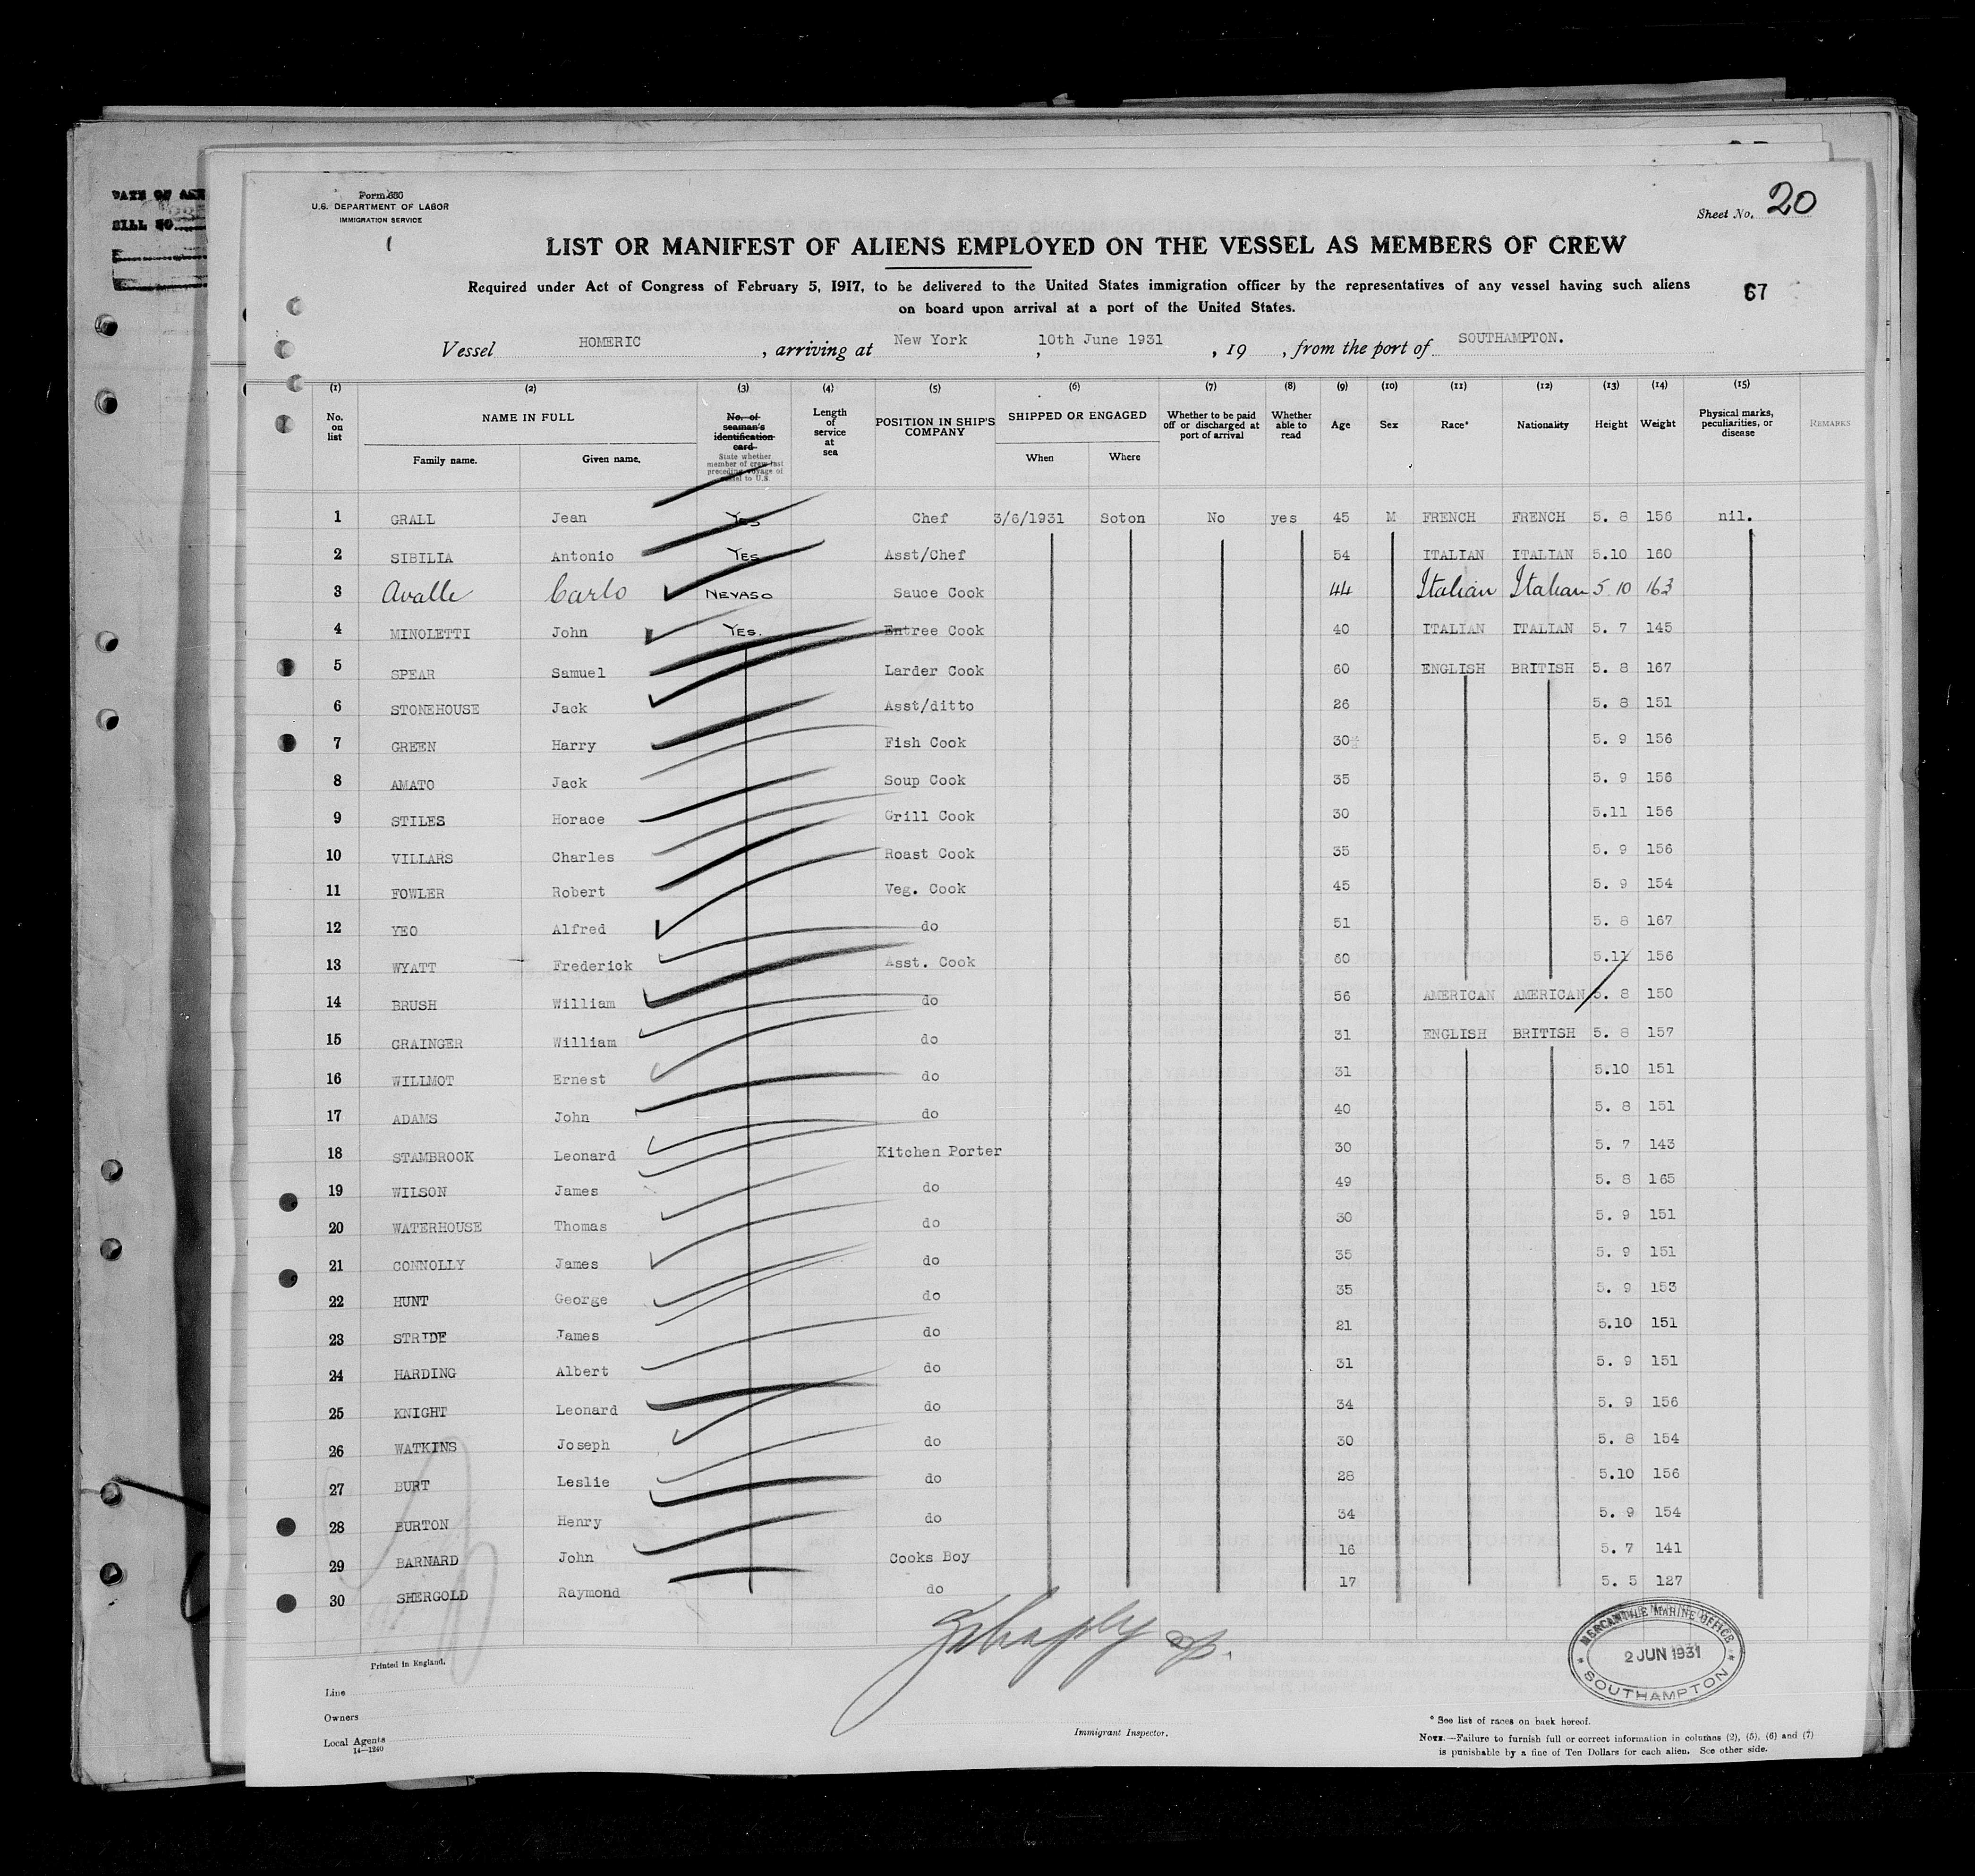 DATE OF
BILL NO
Form 680
U.S. DEPARTMENT OF LABOR
IMMIGRATION SERVICE
Sheet No. 20
LIST OR MANIFEST OF ALIENS EMPLOYED ON THE VESSEL AS MEMBERS OF CREW
Required under Act of Congress of February 5, 1917, to be delivered to the United States immigration officer by the representatives of any vessel having such aliens
on board upon arrival at a port of the United States.
67
Vessel HOMERIC, arriving at New York, 10th June 1931, 19 , from the port of SOUTHAMPTON.
(1) (2) (3) (4) (5) (6) (7) (8) (9) (10) (11) (12) (13) (14) (15)
No. on list NAME IN FULL Family name. Given name. No. of seaman's identification card State whether member of crew last preceding voyage of vessel to U.S. Length of service at sea POSITION IN SHIP'S COMPANY SHIPPED OR ENGAGED When Where Whether to be paid off or discharged at port of arrival Whether able to read Age Sex Race* Nationality Height Weight Physical marks, peculiarities, or disease REMARKS
1 GRALL Jean Yes Chef 3/6/1931 Soton No yes 45 M FRENCH FRENCH 5. 8 156 nil.
2 SIBILIA Antonio YES Asst/Chef 54 ITALIAN ITALIAN 5.10 160
3 Avalle Carlo NEVASO Sauce Cook 44 Italian Italian 5 10 163
4 MINOLETTI John YES. Entree Cook 40 ITALIAN ITALIAN 5. 7 145
5 SPEAR Samuel Larder Cook 60 ENGLISH BRITISH 5. 8 167
6 STONEHOUSE Jack Asst/ditto 26 5. 8 151
7 GREEN Harry Fish Cook 30 5. 9 156
8 AMATO Jack Soup Cook 35 5. 9 156
9 STILES Horace Grill Cook 30 5.11 156
10 VILLARS Charles Roast Cook 35 5. 9 156
11 FOWLER Robert Veg. Cook 45 5. 9 154
12 YEO Alfred do 51 5. 8 167
13 WYATT Frederick Asst. Cook 60 5.11 156
14 BRUSH William do 56 AMERICAN AMERICAN 5. 8 150
15 GRAINGER William do 31 ENGLISH BRITISH 5. 8 157
16 WILLMOT Ernest do 31 5.10 151
17 ADAMS John do 40 5. 8 151
18 STAMBROOK Leonard Kitchen Porter 30 5. 7 143
19 WILSON James do 49 5. 8 165
20 WATERHOUSE Thomas do 30 5. 9 151
21 CONNOLLY James do 35 5. 9 151
22 HUNT George do 35 5. 9 153
23 STRIDE James do 21 5.10 151
24 HARDING Albert do 31 5. 9 151
25 KNIGHT Leonard do 34 5. 9 156
26 WATKINS Joseph do 30 5. 8 154
27 BURT Leslie do 28 5.10 156
28 BURTON Henry do 34 5. 9 154
29 BARNARD John Cooks Boy 16 5. 7 141
30 SHERGOLD Raymond do 17 5. 5 127
MERCANTILE MARINE OFFICE
2 JUN 1931
SOUTHAMPTON
Printed in England.
Line
Owners
Local Agents
14—1240
Immigrant Inspector.
* See list of races on back hereof.
NOTE.—Failure to furnish full or correct information in columns (2), (5), (6) and (7)
is punishable by a fine of Ten Dollars for each alien. See other side.